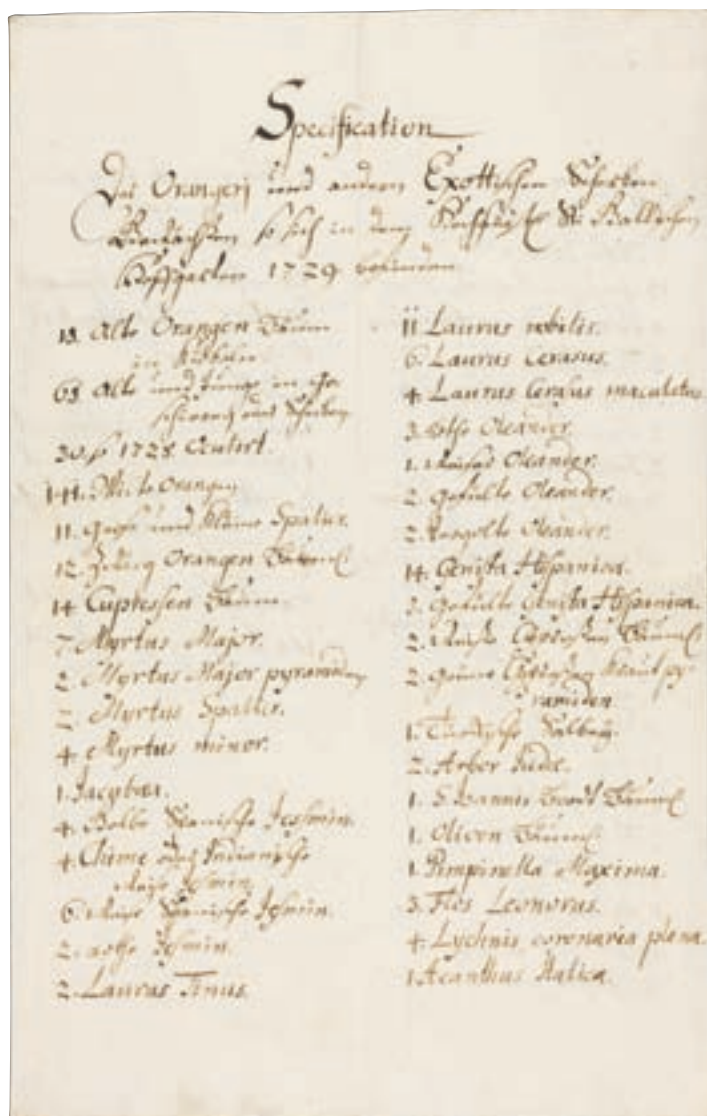 Specification
Der Orangerj und andern Exottischen Scherben
Gewächsen so sich in dem
Hoffgarten 1729 befinden
13. Alte Orangen Bäum
in Küblen
63 Alte und Junge in
und Scherben
30. so 1728 Oculirt.
Orangen
11. große und kleine Spalier.
12. Zwerg Orangen Bäuml
14 Cupressen Bäum.
7. Myrtus Major.
2. Myrtus Major pyramiden
2. Myrtus Spalir.
4. Myrtus minor.
1. Jacobæa.
4. Spanische Jesmin.
4. Indianische
Jesmin
6. Spanische Jesmin.
2. Jesmin.
2. Laurus Tinus.
11 Laurus nobilis.
6. Laurus Cerasus.
4. Laurus Cerasus maculatus.
3. rothe Oleander.
1. Oleander.
2. gefülte Oleander.
2. Oleander.
14. Genista Hispanica.
3. gefülte Genista Hispanica.
2. Bäuml
2. grüne py-
ramiden.
1. Salbey.
2. Arbor Judæ.
1. S. Joannis Brodt Bäuml
1. Oliven Bäuml
1. Pimpinella Maxima.
3. Flos Leonorus.
4. Lychnis coronaria plena.
1 Acanthus Italica.